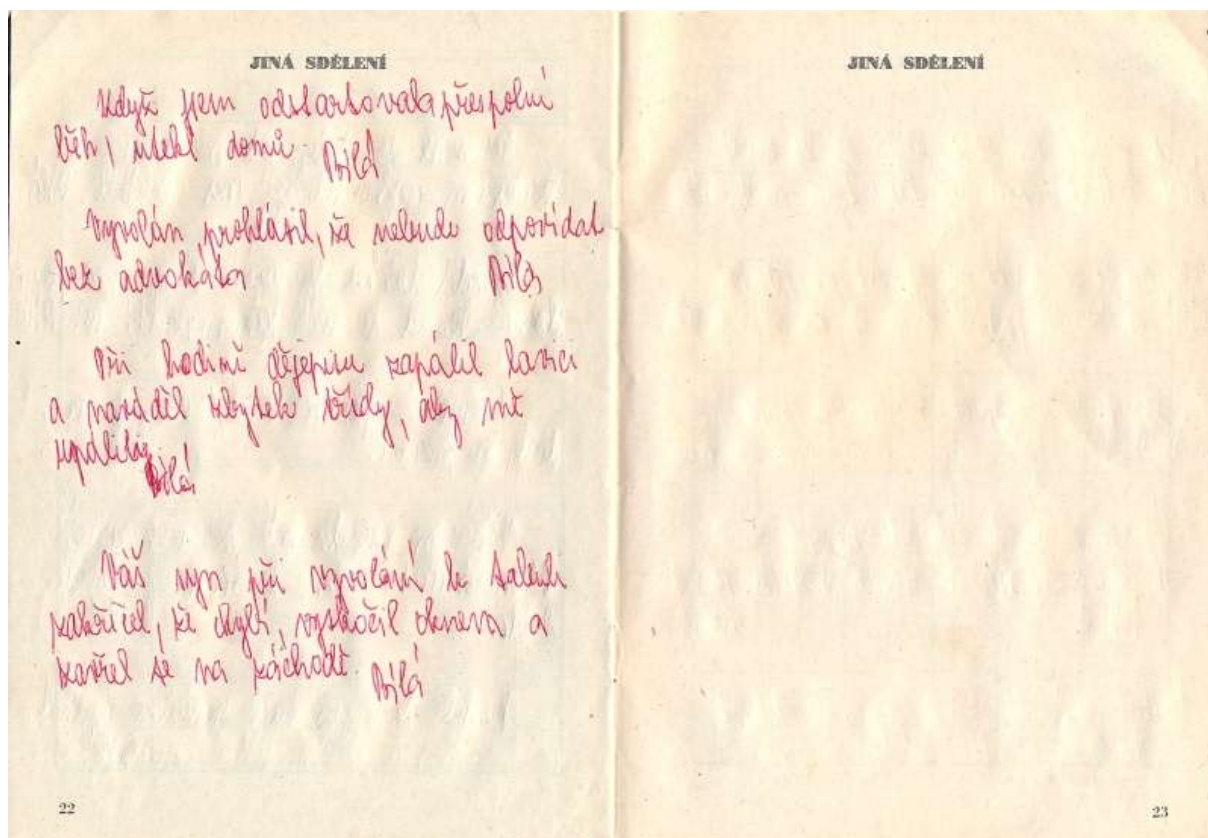 JINÁ SDĚLENÍ
Když jsem odstartovala přespolní
běh, utekl domů. Bílá
Vyvolán, prohlásil, že nebude odpovídat
bez advokáta Bílá
Při hodině dějepisu zapálil lavici
a naváděl zbytek třídy, aby mě
upálili.
Bílá
Váš syn při vyvolání k tabuli
zakřičel, že chybí, vyskočil oknem a
zavřel se na záchodě. Bílá
22
JINÁ SDĚLENÍ
23